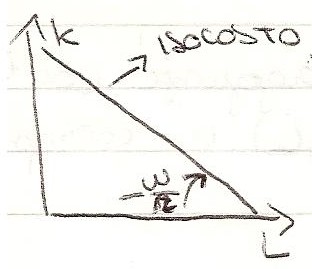 K
ISOCOSTO
-w/r
L